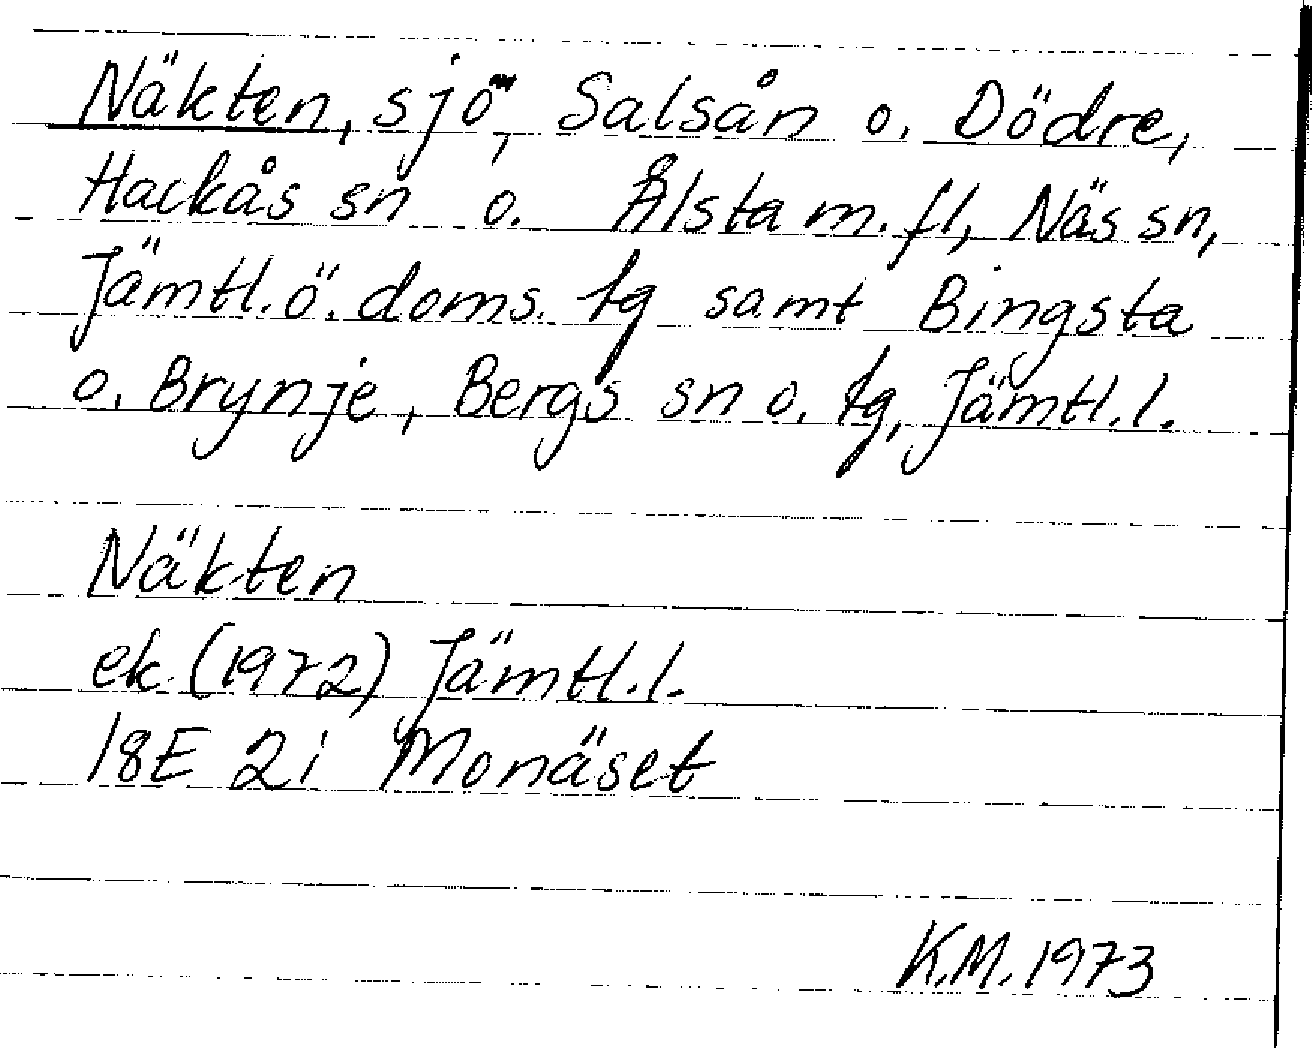 Näkten, sjö, Salsån o. Dödre,
Hackås sn o. Ålsta m. fl, Näs sn,
Jämtl. ö. doms. tg samt Bingsta
o. Brynje, Bergs sn o. tg, Jämtl. l.
Näkten
ek. (1972) Jämtl. l.
18E 2i Monäset
K.M. 1973